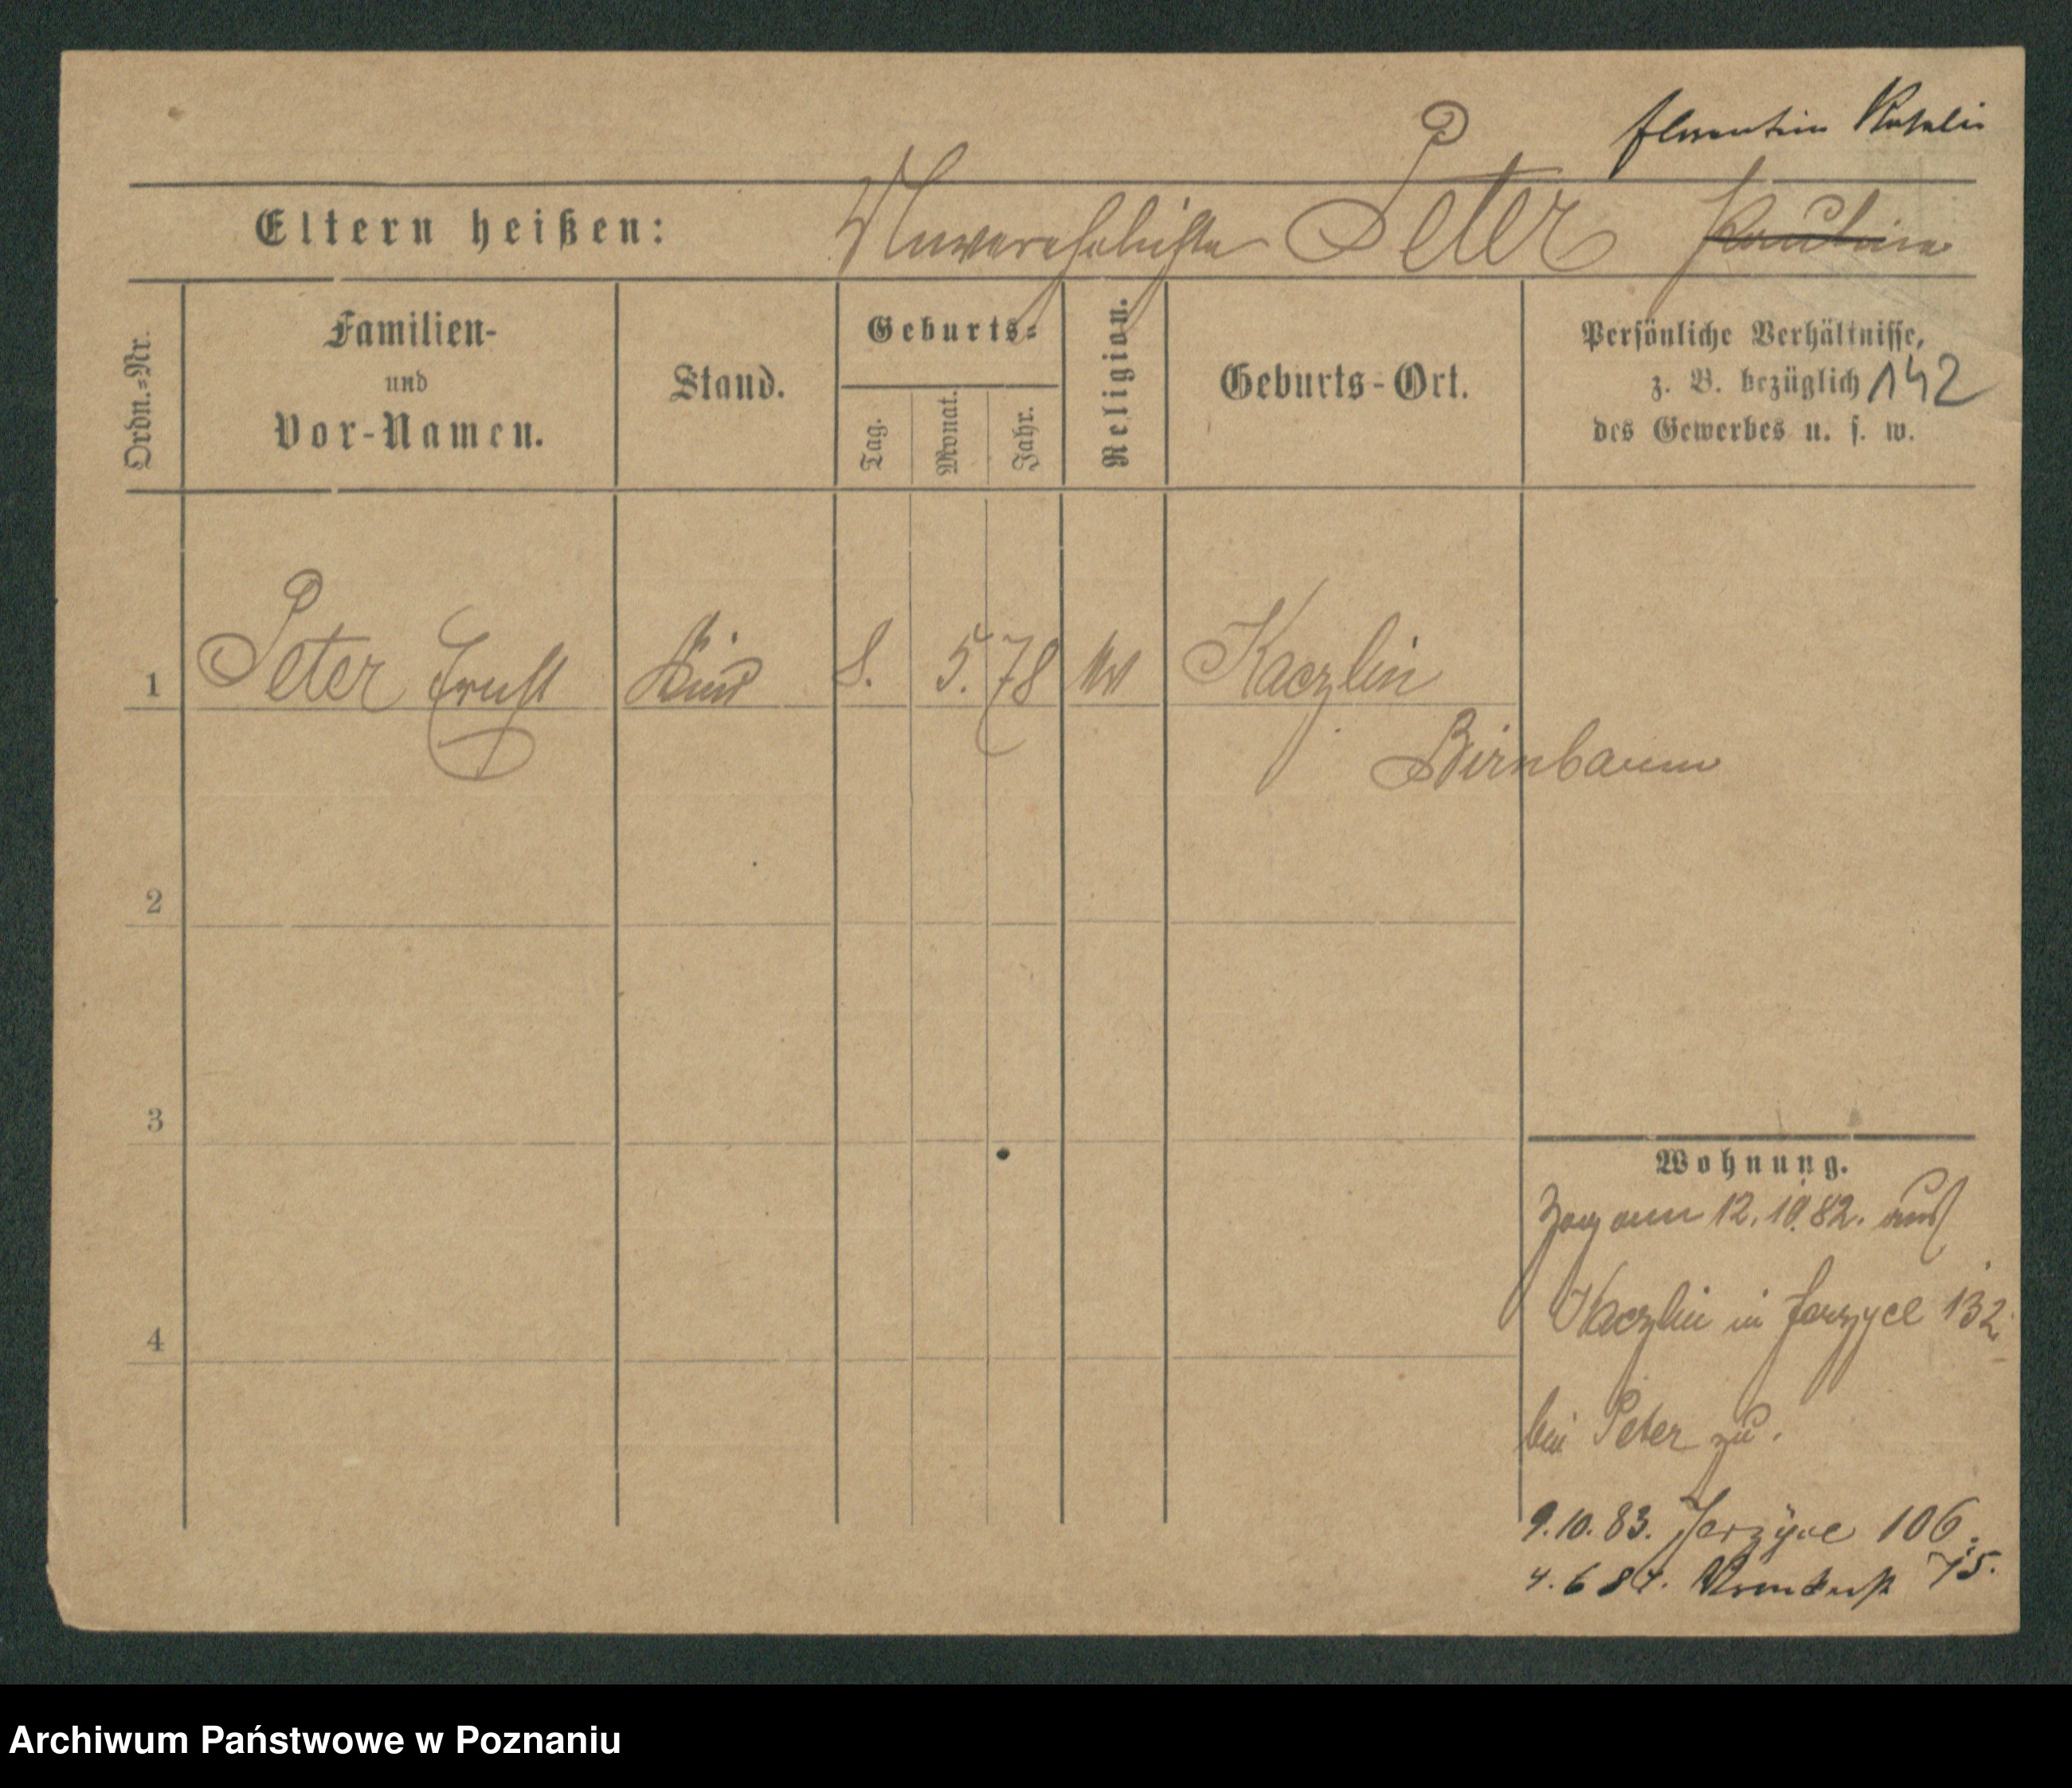 Florentine Natalie
Eltern heißen: Unverehelichte Peter Pauline
Ordn.=Nr.
Familien-
und
Vor-Namen.
Stand.
Geburts=
Tag.
Monat.
Jahr.
Religion.
Geburts-Ort.
Persönliche Verhältnisse,
z. B. bezüglich 142
des Gewerbes u. s. w.
1 Peter Ernst Kind 8. 5. 78 Kaczlin
Birnbaum
2
3
4
Wohnung.
Zog am 12.10.82. aus
Kaczlin in Jerzyce 132
bei Peter zu.
9.10.83. Jerzyce 106.
4.6 84. 75.
Archiwum Państwowe w Poznaniu